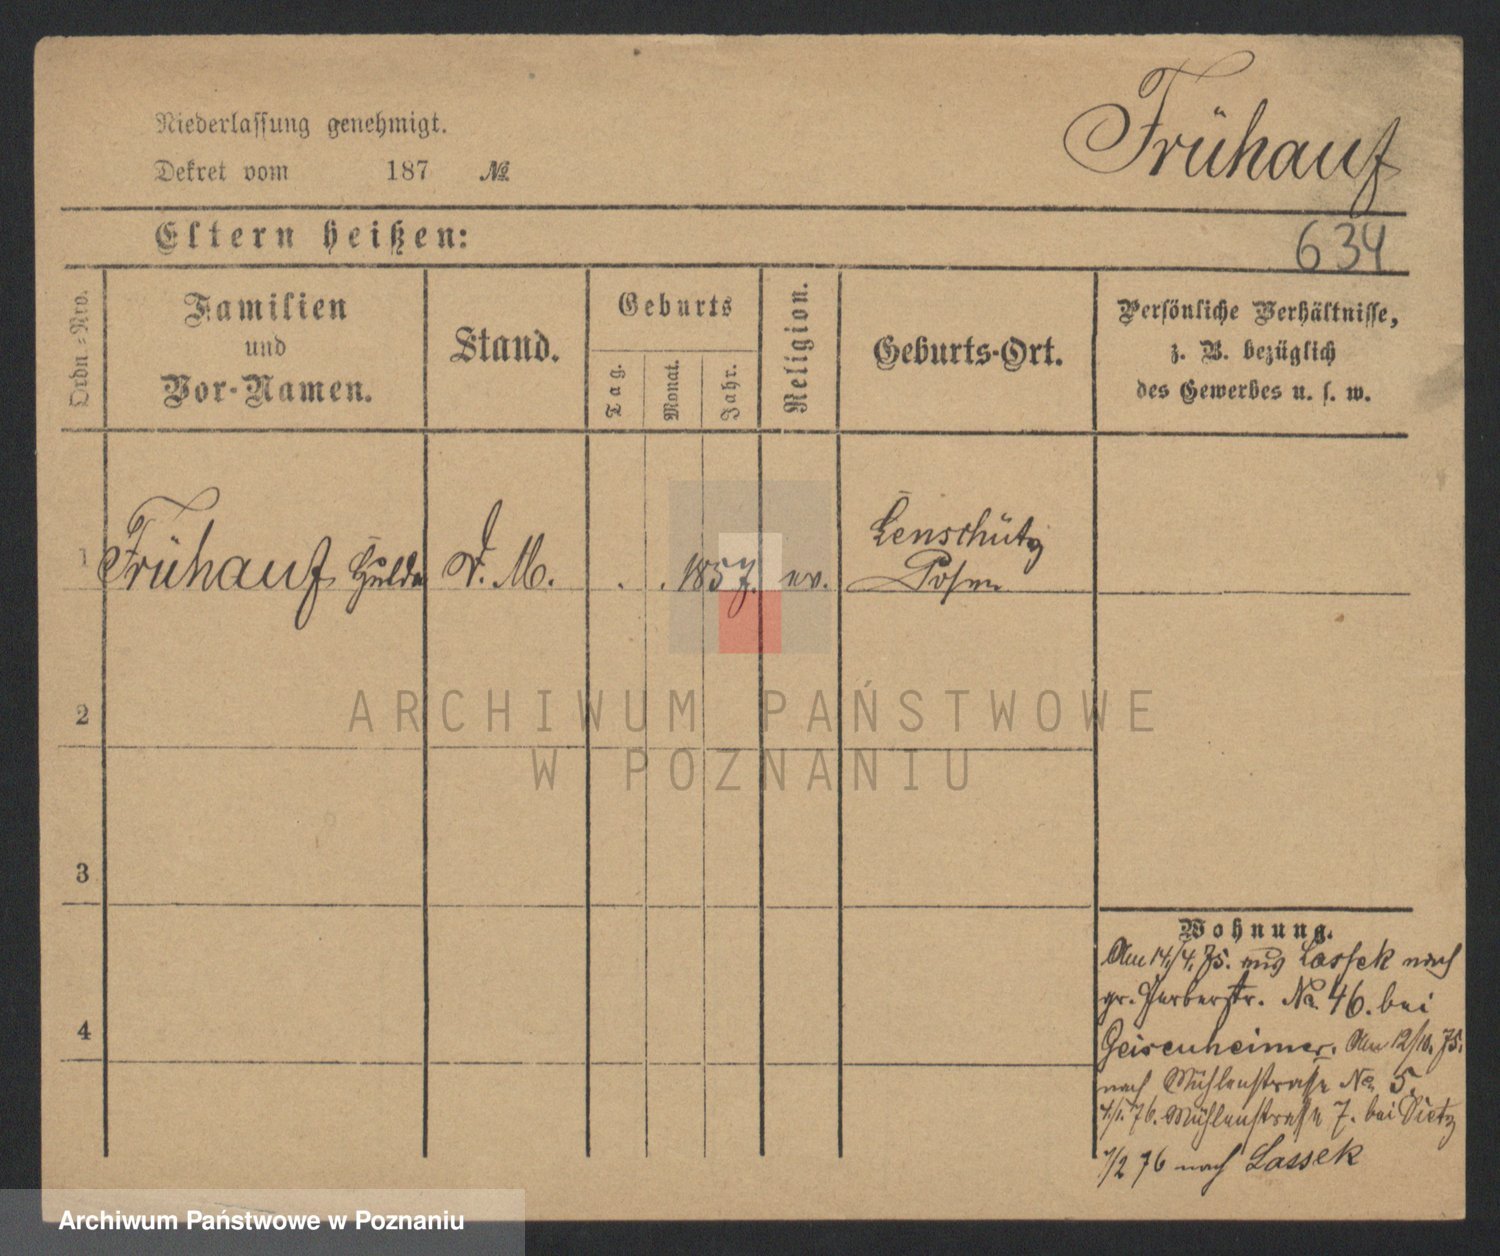 Niederlassung genehmigt.
Dekret vom 187 №
Frühauf
Eltern heißen:
634
Ordn.-Nro.
Familien
und
Vor-Namen.
Stand.
Geburts
Tag.
Monat.
Jahr.
Religion.
Geburts-Ort.
Persönliche Verhältnisse,
z. B. bezüglich
des Gewerbes u. s. w.
1 Frühauf Hulda D. M. . . 1857. ev. Lenschütz
Posen
ARCHIWUM PAŃSTWOWE
W POZNANIU
2
3
4
Wohnung.
Am 14./4. 75. aus Lassek nach
gr. Gerberstr. No. 46. bei
Geisenheimer. Am 12/10. 75.
nach Mühlenstrasse No. 5.
4/1. 76. Mühlenstrasse 7. bei Dietz
7/2 76 nach Lassek
Archiwum Państwowe w Poznaniu